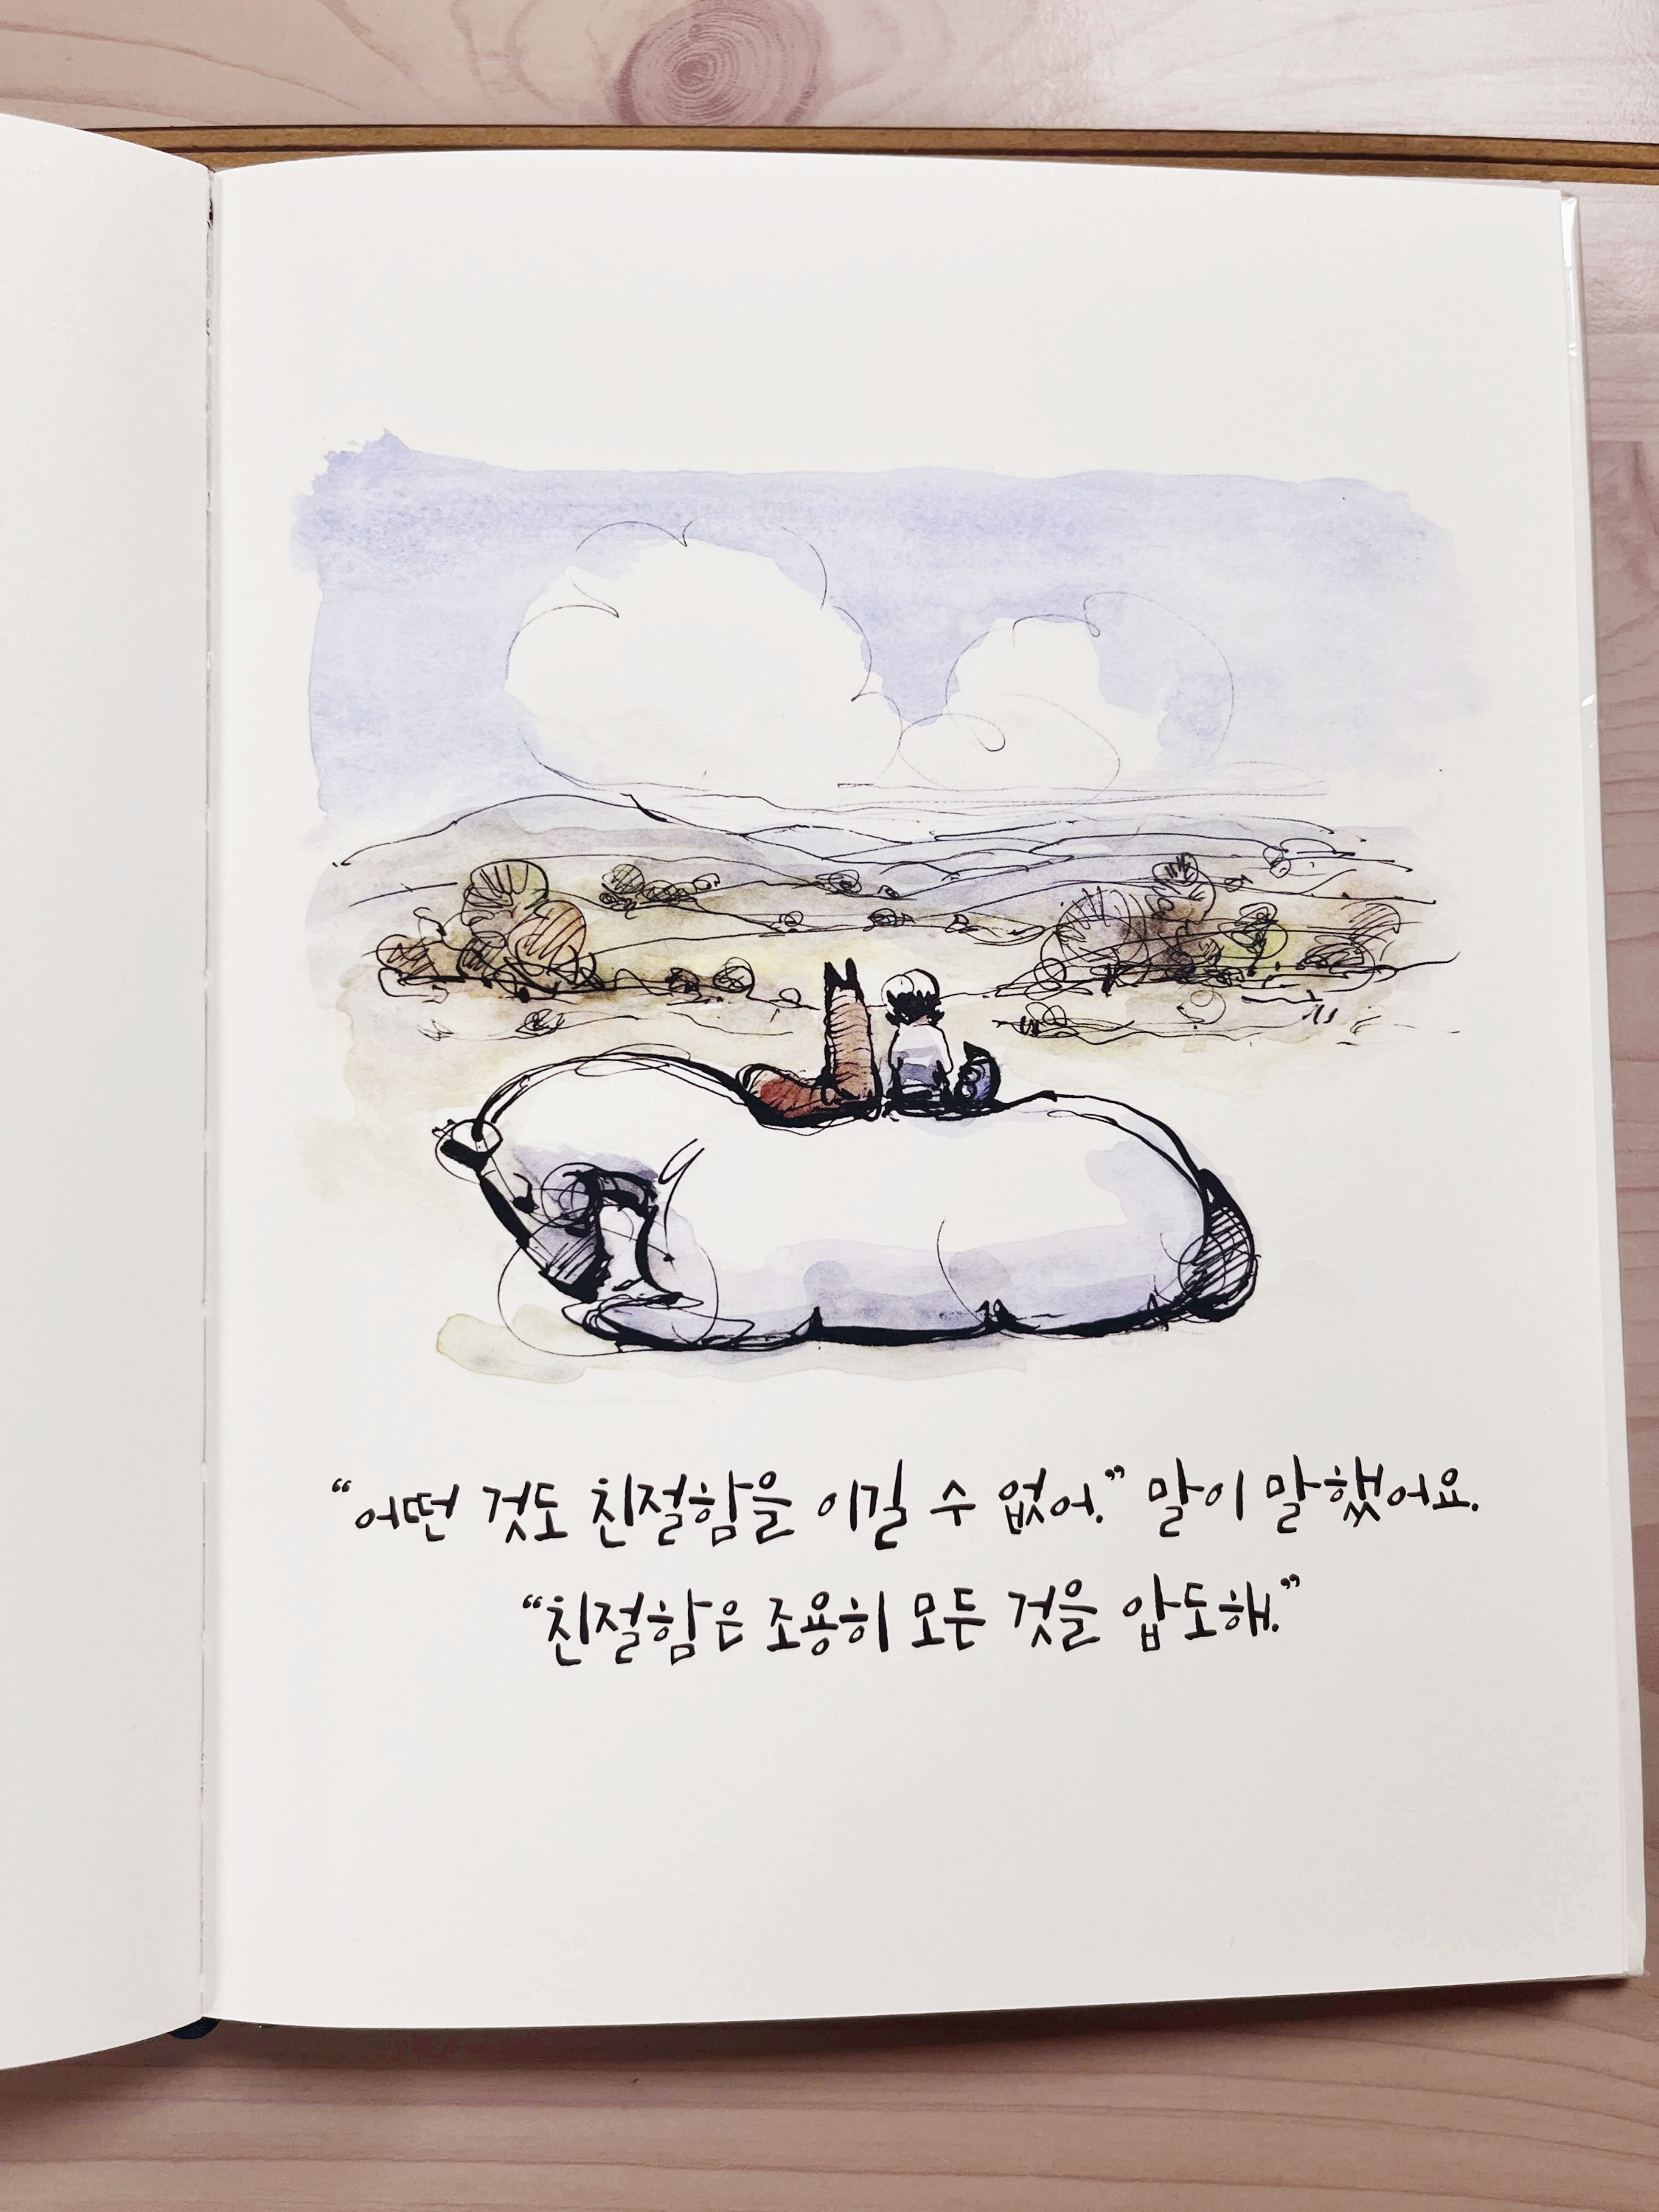 “어떤 것도 친절함을 이길 수 없어.” 말이 말했어요.
“친절함은 조용히 모든 것을 압도해.”